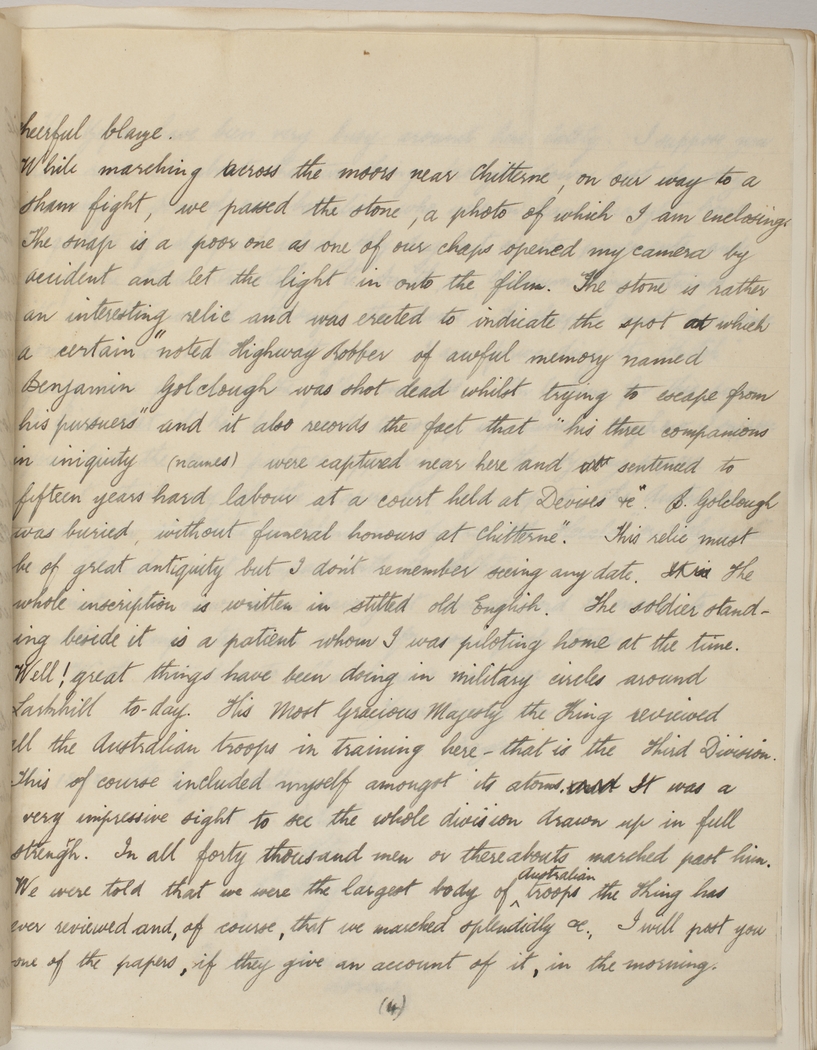 heerful blaze.
While marching across the moors near Chitterne, on our way to a
sham fight, we passed the stone, a photo of which I am enclosing.
The snap is a poor one as one of our chaps opened my camera by
accident and let the light in onto the film. The stone is rather
an interesting relic and was erected to indicate the spot at which
a certain "noted Highway Robber of awful memory named
Benjamin Golclough was shot dead whilst trying to escape from
his pursuers" and it also records the fact that "his three companions
in iniquity (names) were captured near here and sentenced to
fifteen years hard labour at a court held at Devises &c". B. Golclough
was buried, without funeral honours at Chitterne". This relic must
be of great antiquity but I don't remember seeing any date. It is The
whole inscription is written in stilted old English. The soldier stand-
ing beside it is a patient whom I was piloting home at the time.
Well! great things have been doing in military circles around
Larkhill to-day. His Most Gracious Majesty the King reviewed
all the Australian troops in training here - that is the Third Division.
This of course included myself amongst its atoms. and It was a
very impressive sight to see the whole division drawn up in full
strength. In all forty thousand men or thereabouts marched past him.
We were told that we were the largest body of Australian troops the King has
ever reviewed and, of course, that we marched splendidly &c., I will post you
one of the papers, if they give an account of it, in the morning.
(4)